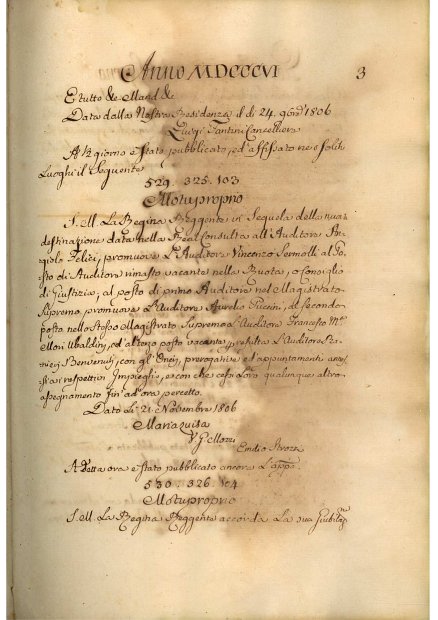 Anno MDCCCVI 3
E tutto &c. Mand. &c.
Data dalla Nostra Residenza il dì 24. 1806
Luigi Fantini Cancelliere
A giorno è stato pubblicato, ed affissato nei soliti
Luoghi il Seguente
529. 325. 103
Motuproprio
S. M. La Regina Reggente in Sequela della nuova
destinazione data nella Real Consulta all'Auditore An=
giolo Felici, promuove L'Auditore Vincenzo Sermolli al Po=
sto di Auditore rimasto vacante nella Ruota, o Consiglio
di Giustizia, al posto di primo Auditore nel Magistrato
Supremo, promuove L'Auditore Aurelio Puccini, al secondo
posto nello Stesso Magistrato Supremo L'Auditore Francesco Mª
Mori Ubaldini, ed al terzo posto vacante L'Auditore Ra=
nieri Benvenuti, con gl'Onori, prerogative ed appuntamenti
respettivi Impieghi, e con che cessi Loro qualunque altro
assegnamento fin'ad'ora percetto.
Dato Lì 21. Novembre 1806
Maria Luisa
V. G. Mozzi
Emilio Strozzi
A detta ora è stato pubblicato ancora L'app.º
530. 326. 104
Motuproprio
S. M. La Regina Reggente accorda La sua Giubilaz:ne